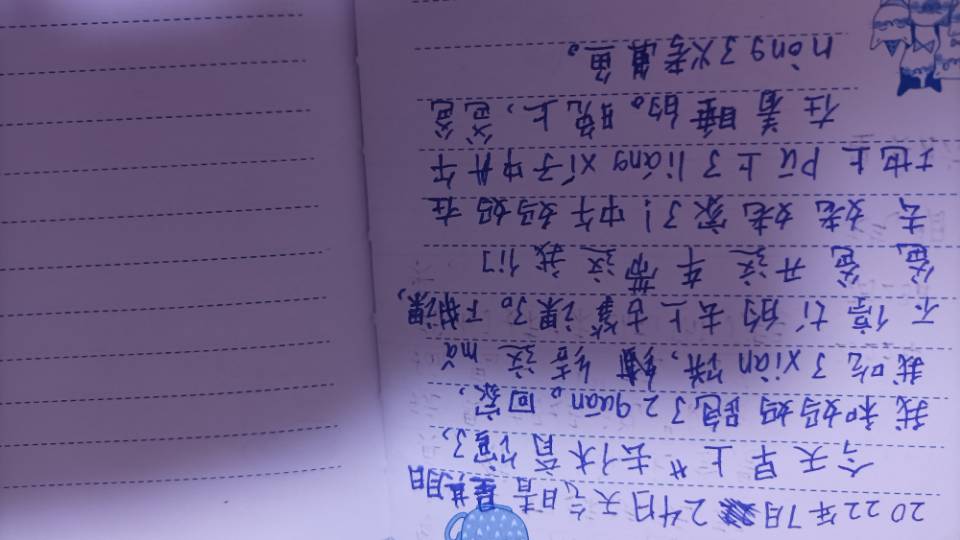 2022年7月24日天气晴 星期日
今天早上去体育馆了,
我和妈妈跑了2quān。回家,
我吃了xiàn饼,结这mǎ
不停tí的去上古筝课了。下课,
爸爸开这车带这我们
去姥姥家了!中午妈妈在
地上pū上了liáng xí子中午
在着睡的。晚上,爸爸
hòng了烤鱼。